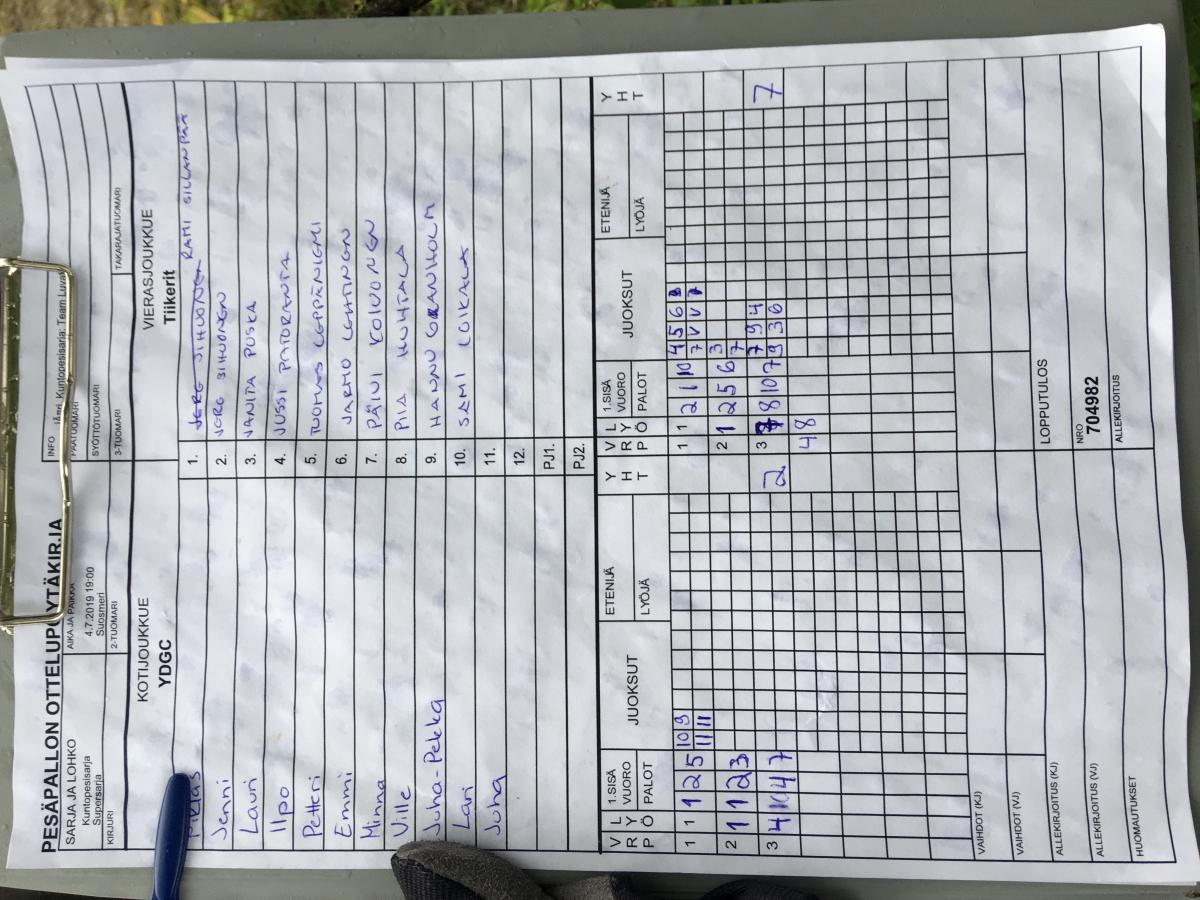 PESÄPALLON OTTELUPÖYTÄKIRJA
SARJA JA LOHKO
Kuntopesisarja
Supersarja
AIKA JA PAIKKA
4.7.2019 19:00
Suosmeri
INFO
Kuntopesisarja: Team Luvat
PÄÄTUOMARI
SYÖTTÖTUOMARI
KIRJURI
2-TUOMARI
3-TUOMARI
TAKARAJATUOMARI
KOTIJOUKKUE
YDGC
VIERASJOUKKUE
Tiikerit
1. RAMI SILLANPÄÄ
Jenni 2. JORE SIHUONEN
Lauri 3. JANITA PUSKA
Ilpo 4. JUSSI
Petteri 5. TUOMAS LEPPÄNIEMI
Emmi 6. JARMO LEHTINEN
Minna 7. PÄIVI KOIVONEN
Ville 8. PIIA HUHTALA
Juha-Pekka 9. HANNU GRANHOLM
Lari 10. SAMI LOIKALA
Juha 11.
12.
PJ1.
PJ2.
V R P L Y Ö 1.SISÄ VUORO PALOT JUOKSUT ETENIJÄ LYÖJÄ Y H T V R P L Y Ö 1.SISÄ VUORO PALOT JUOKSUT ETENIJÄ LYÖJÄ Y H T
1 1 1 2 5 10 9 1 1 2 1 10 4 5 6 8
11 11 7 V V 7
2 1 1 2 3 2 1 2 5 6 3
7
3 4 10 4 7 2 3 8 10 7 7 9 4 7
9 3 6
4 8
VAIHDOT (KJ)
VAIHDOT (VJ)
ALLEKIRJOITUS (KJ) LOPPUTULOS
ALLEKIRJOITUS (VJ) NRO
704982
ALLEKIRJOITUS
HUOMAUTUKSET